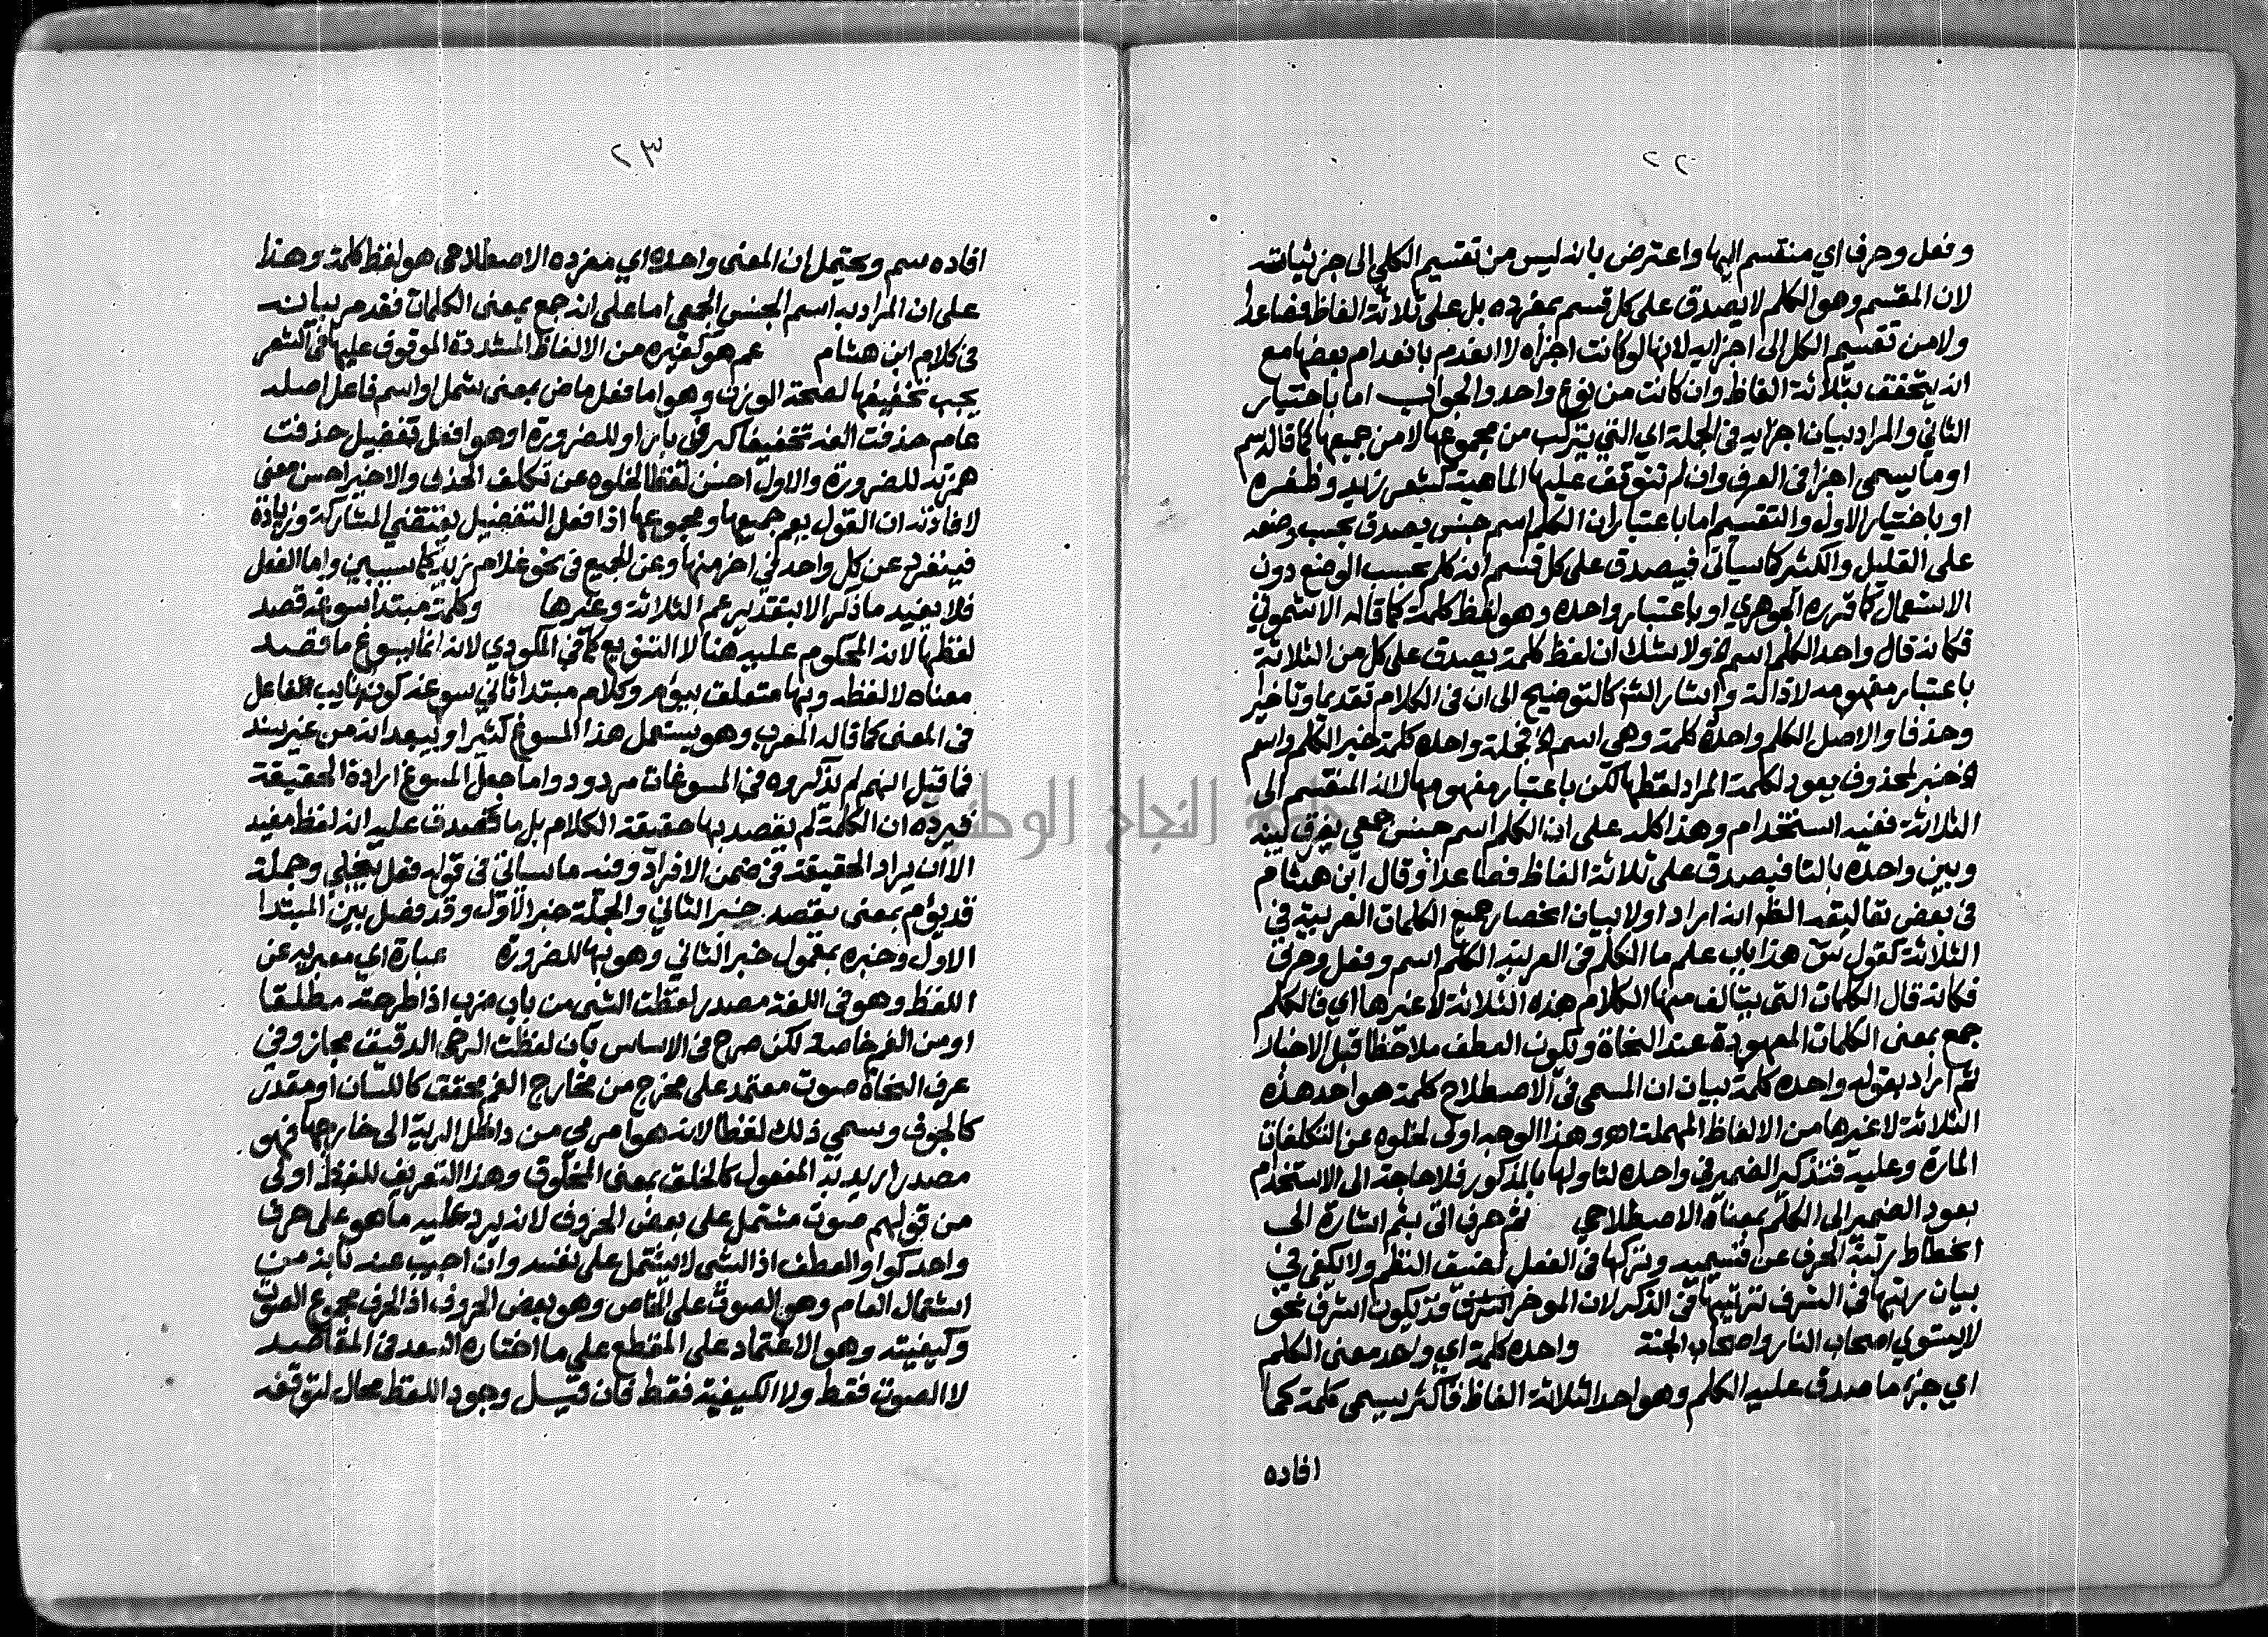 ٢٢
وفعل وحرف اي منقسم اليها واعترض بانه ليس من تقسيم الكلي الى جزئياته
لان المقسم وهو الكلم لا يصدق على كل قسم بمفرده بل على ثلاثة الفاظ فصاعدا
ولا من تقسيم الكل الى اجزايه لانها لو كانت اجزاه لا انعدم بانعدام بعضها مع
انه يتحقق بثلاثة الفاظ وان كانت من نوع واحد والجواب اما باختيار
الثاني والمراد بيان اجزايه في الجملة اي التي يتركب من مجموعها لا من جميعها كما قاله سم
او ما يسمى اجزا في العرف وان لم تتوقف عليها الماهية كشعر زيد وظفره
او باختيار الاول والتقسيم اما باعتبار ان الكلم اسم جنس يصدق بحسب وضعه
على القليل والكثير كما سياتي فيصدق على كل قسم انه كلم بحسب الوضع دون
الاستعمال كما قرره الجوهري او باعتبار واحده وهو لفظ كلمة كما قاله الاشموني
فكانه قال واحد الكلم اسم الخ ولا شك ان لفظ كلمة يصدق على كل من الثلاثة
باعتبار مفهومه لا ذاته واشار الشم كالتوضيح الى ان في الكلام تقديما وتاخيرا
وحذفا والاصل الكلم واحده كلمة وهي اسم الخ فجملة واحده كلمة خبر الكلم واسم
الخ خبر لمحذوف يعود لكلمة المراد لفظها لكن باعتبار مفهومها لانه المنقسم الى
الثلاثة ففيه استخدام وهذا كله على ان الكلم اسم جنس جمعي يفرق بينه
وبين واحده بالتا فيصدق على ثلاثة الفاظ فصاعدا وقال ابن هشام
في بعض تعاليقه الظم انه اراد اولا بيان انحصار جميع الكلمات العربية في
الثلاثة كقول س هذا باب علم ما الكلم في العربية الكلم اسم وفعل وحرف
فكانه قال الكلمات التي يتالف منها الكلام هذه الثلاثة لا غيرها اي فالكلم
جمع بمعنى الكلمات المعهودة عند النحاة ويكون العطف ملاحظا قبل الاخبار
ثم اراد بقوله واحده كلمة بيان ان المسمى في الاصطلاح كلمة هو احد هذه
الثلاثة لا غيرها من الالفاظ المهملة اهو وهذا الوجه اولى لخلوه عن التكلفات
المارة وعليه فتذكير الضمير في واحده لتاولها بالمذكور فلا حاجة الى الاستخدام
بعود الضمير الى الكلم بمعناه الاصطلاحي ثم حرف اتى بثم اشارة الى
انحطاط رتبة الحرف عن قسيميه وتركها في الفعل لضيق النظم ولا يكفي في
بيان رتبتها في الشرف ترتيبها في الذكر لان الموخر قد يكون اشرف نحو
لا يستوي اصحاب النار واصحاب الجنة واحده كلمة اي واحد معنى الكلم
اي جزء ما صدق عليه الكلم وهو احد الثلاثة الفاظ فاكثر يسمى كلمة كما
افاده
٢٣
افاده سم ويحتمل ان المعنى واحده اي مفرده الاصطلاحي هو لفظ كلمة وهذا
على ان المراد به اسم الجنس الجمعي اما على انه جمع بمعنى الكلمات فقد مر بيانه
في كلام ابن هشام عم هو كغيره من الالفاظ المشددة الموقوف عليها في الشعر
يجب تخفيفها لصحة الوزن وهو اما فعل ماض بمعنى شمل او اسم فاعل اصله
عامم حذفت الفه تخفيفا كبر في بار او للضرورة او هو افعل تفضيل حذفت
همزته للضرورة والاول احسن لفظا لخلوه عن تكلف الحذف والاخير احسن معنى
لافادته ان القول يعم جميعها ومجموعها اذ افعل التفضيل يقتضي المشاركة وزيادة
فينفرد عن كل واحد في اخر منها وعن الجميع في نحو غلام زيد كما سيبين واما الفعل
فلا يفيد ما ذكر الا بتقدير عم الثلاثة وغيرها وكلمة مبتدا سوغه قصد
لفظها لانه المحكوم عليه هنا لا التنويع كما في المكودي لانه انما يسوغ ما قصد
معناه لا لفظه وبها متعلق بيؤم وكلام مبتدا ثاني سوغه كونه نايب الفاعل
في المعنى كما قاله المعرب وهو يستعمل هذا المسوغ كثيرا ويبعد انه من غير سند
فما قيل انهم لم يذكروه في المسوغات مردود واما جعل المسوغ ارادة الحقيقة
فيرده ان الكلمة لم يقصد بها حقيقة الكلام بل ما تصدق عليه انه لفظ مفيد
الا ان يراد الحقيقة في ضمن الافراد وفيه ما سياتي في قوله فعل ينجلي وجملة
قد يؤم بمعنى يقصد خبر الثاني والجملة خبر الاول وقد فصل بين المبتدا
الاول وخبره بمعمول خبر الثاني وهو بها للضرورة عبارة اي معبر به عن
اللفظ وهو في اللغة مصدر لفظت الشي من باب ضرب اذا طرحته مطلقا
او من الفم خاصة لكن صرح في الاساس بان لفظت الرحى الدقيق مجاز وفي
عرف النحاة صوت معتمد على مخرج من مخارج الفم محقق كاللسان او مقدر
كالجوف وسمي ذلك لفظا لانه هوا مرمي من داخل الرية الى خارجها فهو
مصدر اريد به المفعول كالخلق بمعنى المخلوق وهذا التعريف للفظ اولى
من قولهم صوت مشتمل على بعض الحروف لانه يرد عليه ما هو على حرف
واحد كواو العطف اذ الشي لا يشتمل على نفسه وان اجيب عنه بانه من
اشتمال العام وهو الصوت على الخاص وهو بعض الحروف اذ الحرف مجموع الصوت
وكيفيته وهو الاعتماد على المقطع على ما اختاره السعد في المقاصد
لا الصوت فقط ولا الكيفية فقط فان قيل وجود اللفظ محال لتوقفه
جامعة النجاح الوطنية